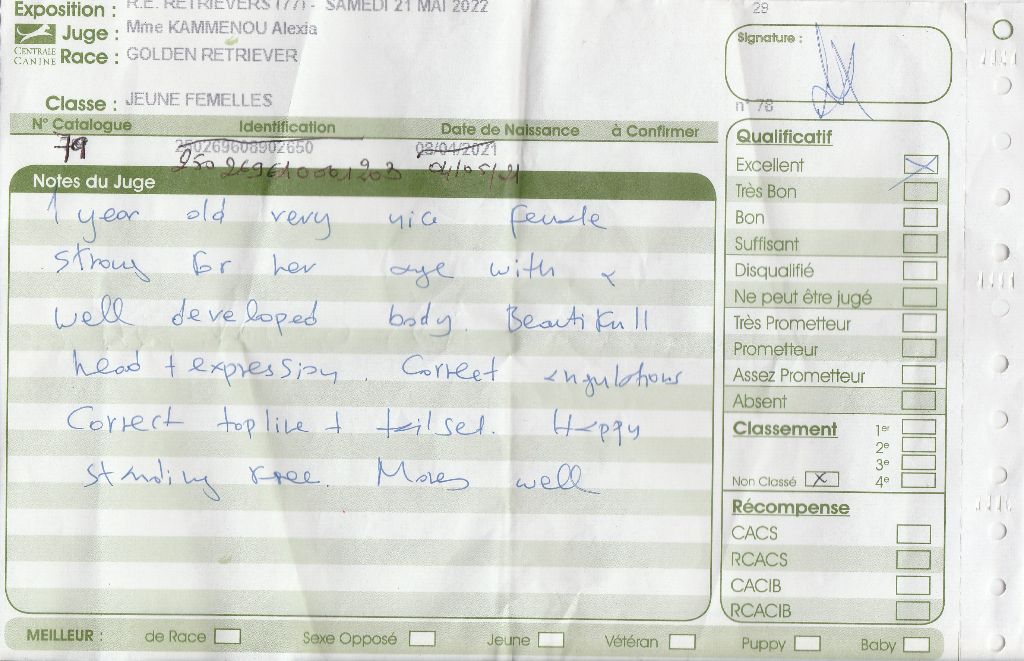 Exposition : R.E. RETRIEVERS (77) - SAMEDI 21 MAI 2022
Juge : Mme KAMMENOU Alexia
CENTRALE CANINE Race : GOLDEN RETRIEVER
Classe : JEUNE FEMELLES
29
Signature :
n° 78
N° Catalogue Identification Date de Naissance à Confirmer
79 250269608902650 03/04/2021
04/05/21
Notes du Juge
1 year old very nice female
strong for her age with a
well developed body. Beautifull
head + expression. Correct angulations
Correct topline + tailset. Happy
standing free. Moves well
Qualificatif
Excellent X
Très Bon
Bon
Suffisant
Disqualifié
Ne peut être jugé
Très Prometteur
Prometteur
Assez Prometteur
Absent
Classement 1er
2e
3e
Non Classé X 4e
Récompense
CACS
RCACS
CACIB
RCACIB
MEILLEUR : de Race Sexe Opposé Jeune Vétéran Puppy Baby